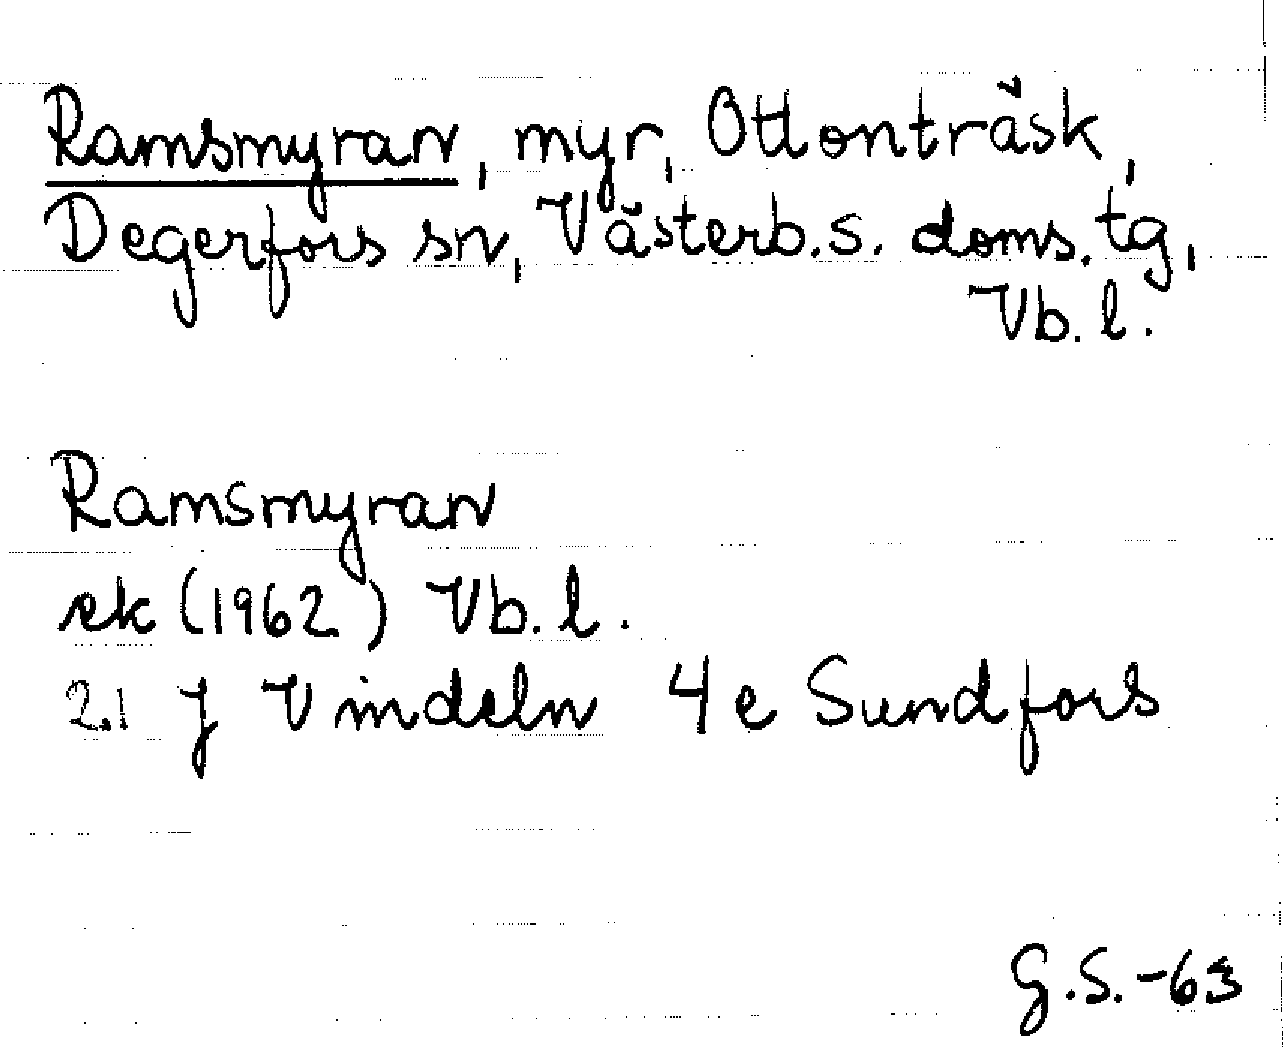 Ramsmyran, myr, Ottonträsk,
Degerfors sn, Västerb.s. doms. tg,
Vb. l.
Ramsmyran
ek (1962) Vb. l.
21 J Vindeln 4e Sundfors
G.S.-63